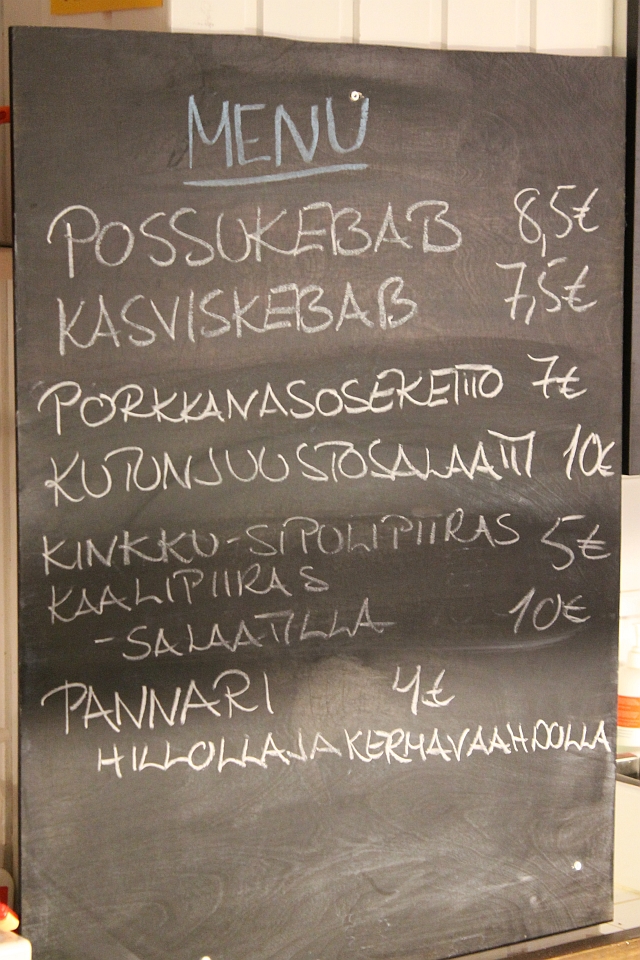 MENU
POSSUKEBAB 8,5€
KASVISKEBAB 7,5€
PORKKANASOSEKEITTO 7€
KUTUNJUUSTOSALAATTI 10€
KINKKU-SIPULIPIIRAS 5€
KAALIPIIRAS
-SALAATILLA 10€
PANNARI 4€
HILLOLLA JA KERMAVAAHDOLLA